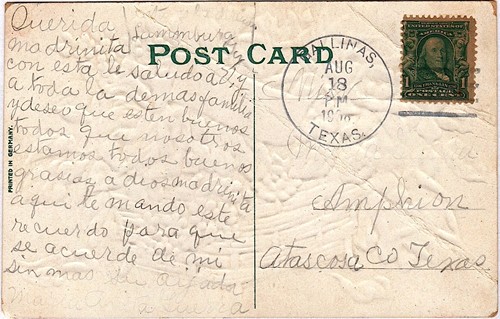 Querida
madrinita
POST CARD
con esta le saludo a
a toda la demas familia
y deseo que esten buenos
todos que nosotros
estamos todos buenos
grasias a dios madrinita
aqui te mando este
recuerdo para que
se acuerde de mi
sin mas su aijada
PRINTED IN GERMANY.
LLINAS,
AUG
18
PM
TEXAS.
1
Amphion
Atascosa Co Texas